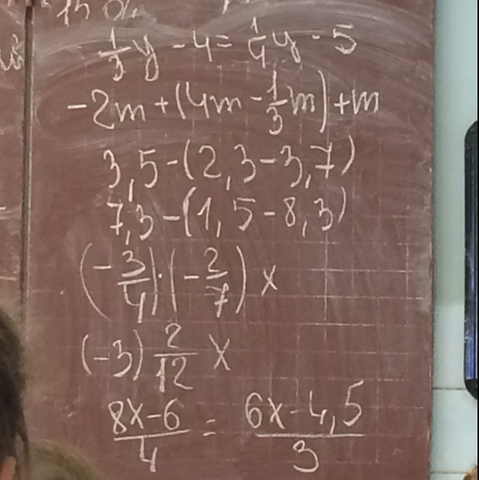 15%
1/3 y - 4 = 1/4 y - 5
-2m + (4m - 1/3 m) + m
3,5 - (2,3 - 3,7)
7,3 - (1,5 - 8,3)
(-3/4) · (-2/7) x
(-3) 2/12 x
(8x-6)/4 = (6x-4,5)/3